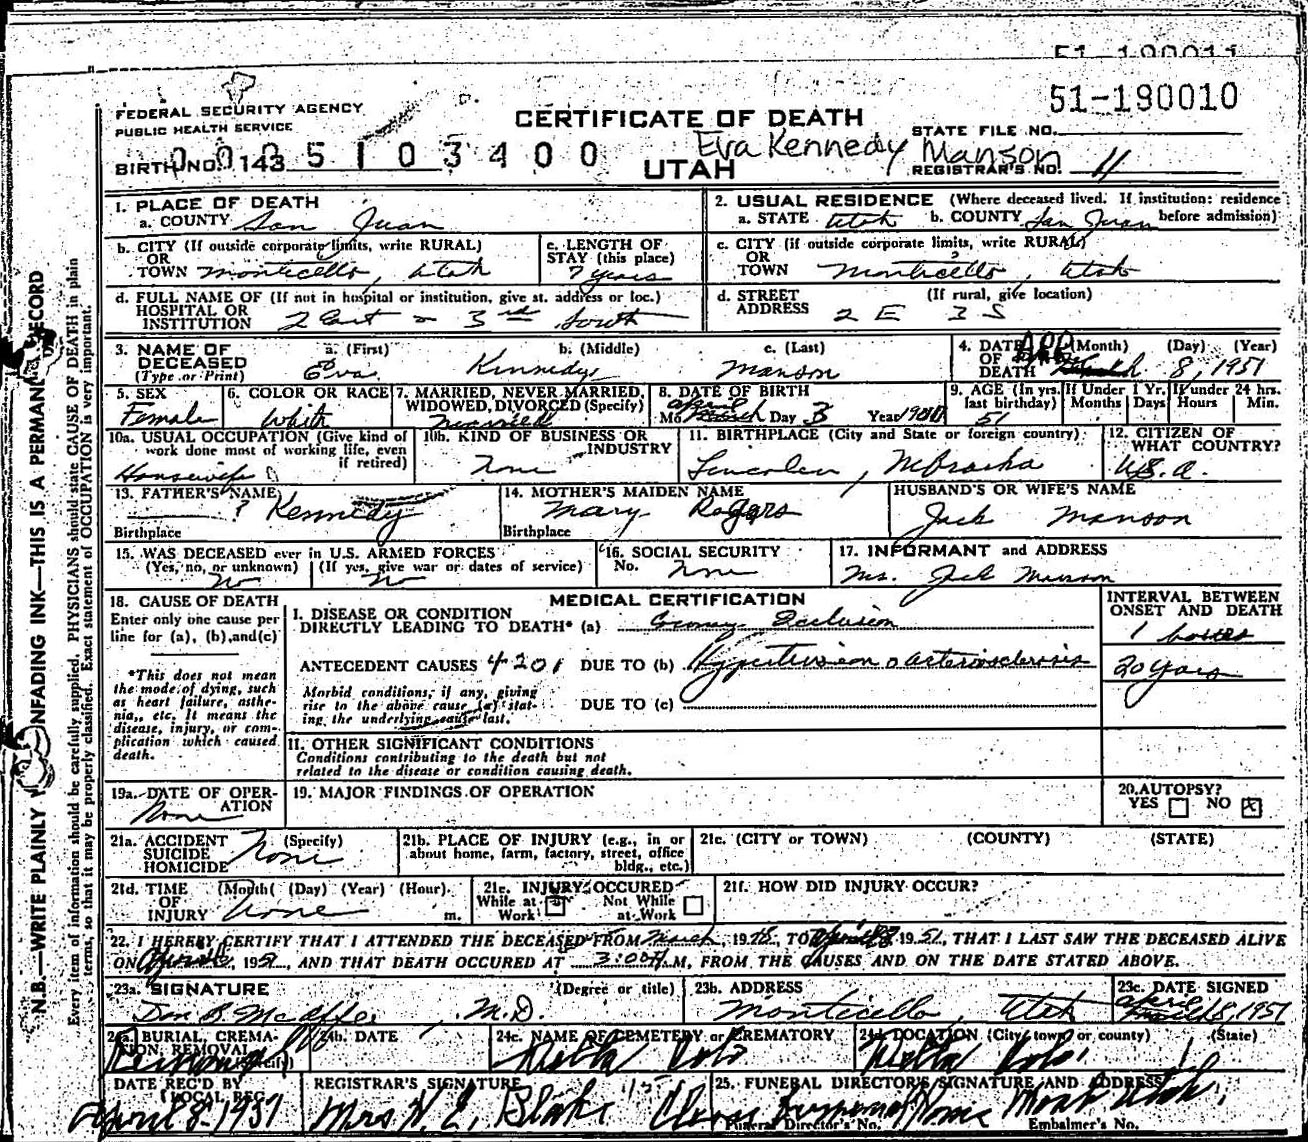 51-190011
51-190010
FEDERAL SECURITY AGENCY
PUBLIC HEALTH SERVICE
CERTIFICATE OF DEATH
STATE FILE NO.
BIRTH NO. 143
0 0 0 5 1 0 3 4 0 0
Eva Kennedy Manson
UTAH
REGISTRAR'S NO. 11
1. PLACE OF DEATH
a. COUNTY San Juan
2. USUAL RESIDENCE (Where deceased lived. If institution: residence before admission)
a. STATE Utah b. COUNTY San Juan
b. CITY (If outside corporate limits, write RURAL)
OR
TOWN Monticello, Utah
c. LENGTH OF STAY (this place)
7 years
c. CITY (if outside corporate limits, write RURAL)
OR
TOWN Monticello, Utah
d. FULL NAME OF (If not in hospital or institution, give st. address or loc.)
HOSPITAL OR
INSTITUTION 2 East 3rd South
d. STREET ADDRESS (If rural, give location)
2 E 3 S
3. NAME OF DECEASED
(Type or Print)
a. (First) b. (Middle) c. (Last)
Eva Kennedy Manson
4. DATE OF DEATH (Month) (Day) (Year)
Apr 8, 1951
5. SEX
Female
6. COLOR OR RACE
White
7. MARRIED, NEVER MARRIED, WIDOWED, DIVORCED (Specify)
Married
8. DATE OF BIRTH
Mo. April Day 3 Year
9. AGE (In yrs. last birthday)
51
If Under 1 Yr.
Months Days
If under 24 hrs.
Hours Min.
10a. USUAL OCCUPATION (Give kind of work done most of working life, even if retired)
Housewife
10b. KIND OF BUSINESS OR INDUSTRY
None
11. BIRTHPLACE (City and State or foreign country)
Lincoln, Nebraska
12. CITIZEN OF WHAT COUNTRY?
U.S.A.
13. FATHER'S NAME
? Kennedy
Birthplace
14. MOTHER'S MAIDEN NAME
Mary Rogers
Birthplace
HUSBAND'S OR WIFE'S NAME
Jack Manson
15. WAS DECEASED ever in U.S. ARMED FORCES
(Yes, no, or unknown) (If yes, give war or dates of service)
No No
16. SOCIAL SECURITY No.
None
17. INFORMANT and ADDRESS
Jack Manson
18. CAUSE OF DEATH
Enter only one cause per line for (a), (b), and (c)
*This does not mean the mode of dying, such as heart failure, asthenia, etc. It means the disease, injury, or complication which caused death.
MEDICAL CERTIFICATION
INTERVAL BETWEEN ONSET AND DEATH
I. DISEASE OR CONDITION
DIRECTLY LEADING TO DEATH* (a) Coronary Occlusion
ANTECEDENT CAUSES 4201 DUE TO (b) Hypertension & arteriosclerosis
20 years
Morbid conditions, if any, giving rise to the above cause (a) stating the underlying cause last.
DUE TO (c)
II. OTHER SIGNIFICANT CONDITIONS
Conditions contributing to the death but not related to the disease or condition causing death.
19a. DATE OF OPERATION
None
19. MAJOR FINDINGS OF OPERATION
20. AUTOPSY?
YES NO X
21a. ACCIDENT SUICIDE HOMICIDE (Specify)
None
21b. PLACE OF INJURY (e.g., in or about home, farm, factory, street, office bldg., etc.)
21c. (CITY or TOWN) (COUNTY) (STATE)
21d. TIME OF INJURY (Month) (Day) (Year) (Hour)
None m.
21e. INJURY OCCURED
While at Work Not While at Work
21f. HOW DID INJURY OCCUR?
22. I HEREBY CERTIFY THAT I ATTENDED THE DECEASED FROM March, 1948, TO April 8 1951, THAT I LAST SAW THE DECEASED ALIVE
ON April, 1951, AND THAT DEATH OCCURED AT 3:00 M, FROM THE CAUSES AND ON THE DATE STATED ABOVE.
23a. SIGNATURE (Degree or title)
M.D.
23b. ADDRESS
Monticello, Utah
23c. DATE SIGNED
April 8, 1951
24a. BURIAL, CREMATION, REMOVAL (Specify)
Removal
24b. DATE
24c. NAME OF CEMETERY or CREMATORY
Delta Colo
24d. LOCATION (City, town or county) (State)
Delta Colo.
DATE REC'D BY LOCAL REG.
April 8-1951
REGISTRAR'S SIGNATURE
Mrs W. E. Blake
25. FUNERAL DIRECTOR'S SIGNATURE AND ADDRESS
Home Moab Utah.
Funeral Director's No. Embalmer's No.
N.B.—WRITE PLAINLY UNFADING INK—THIS IS A PERMANENT RECORD
Every item of information should be carefully supplied. PHYSICIANS should state CAUSE OF DEATH in plain
terms, so that it may be properly classified. Exact statement of OCCUPATION is very important.